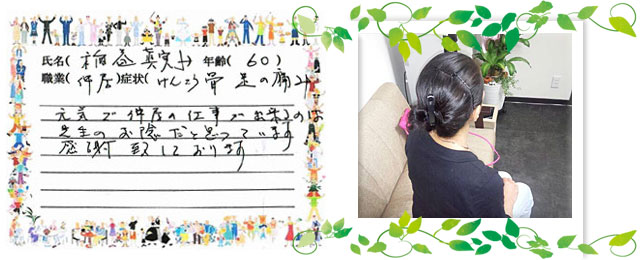 氏名(柏谷真実子)年齢(60)
職業(仲居)症状(けんこう骨 足の痛み)
元気で仲居の仕事が出来るのは
先生のお陰だと思っています
感謝致しております